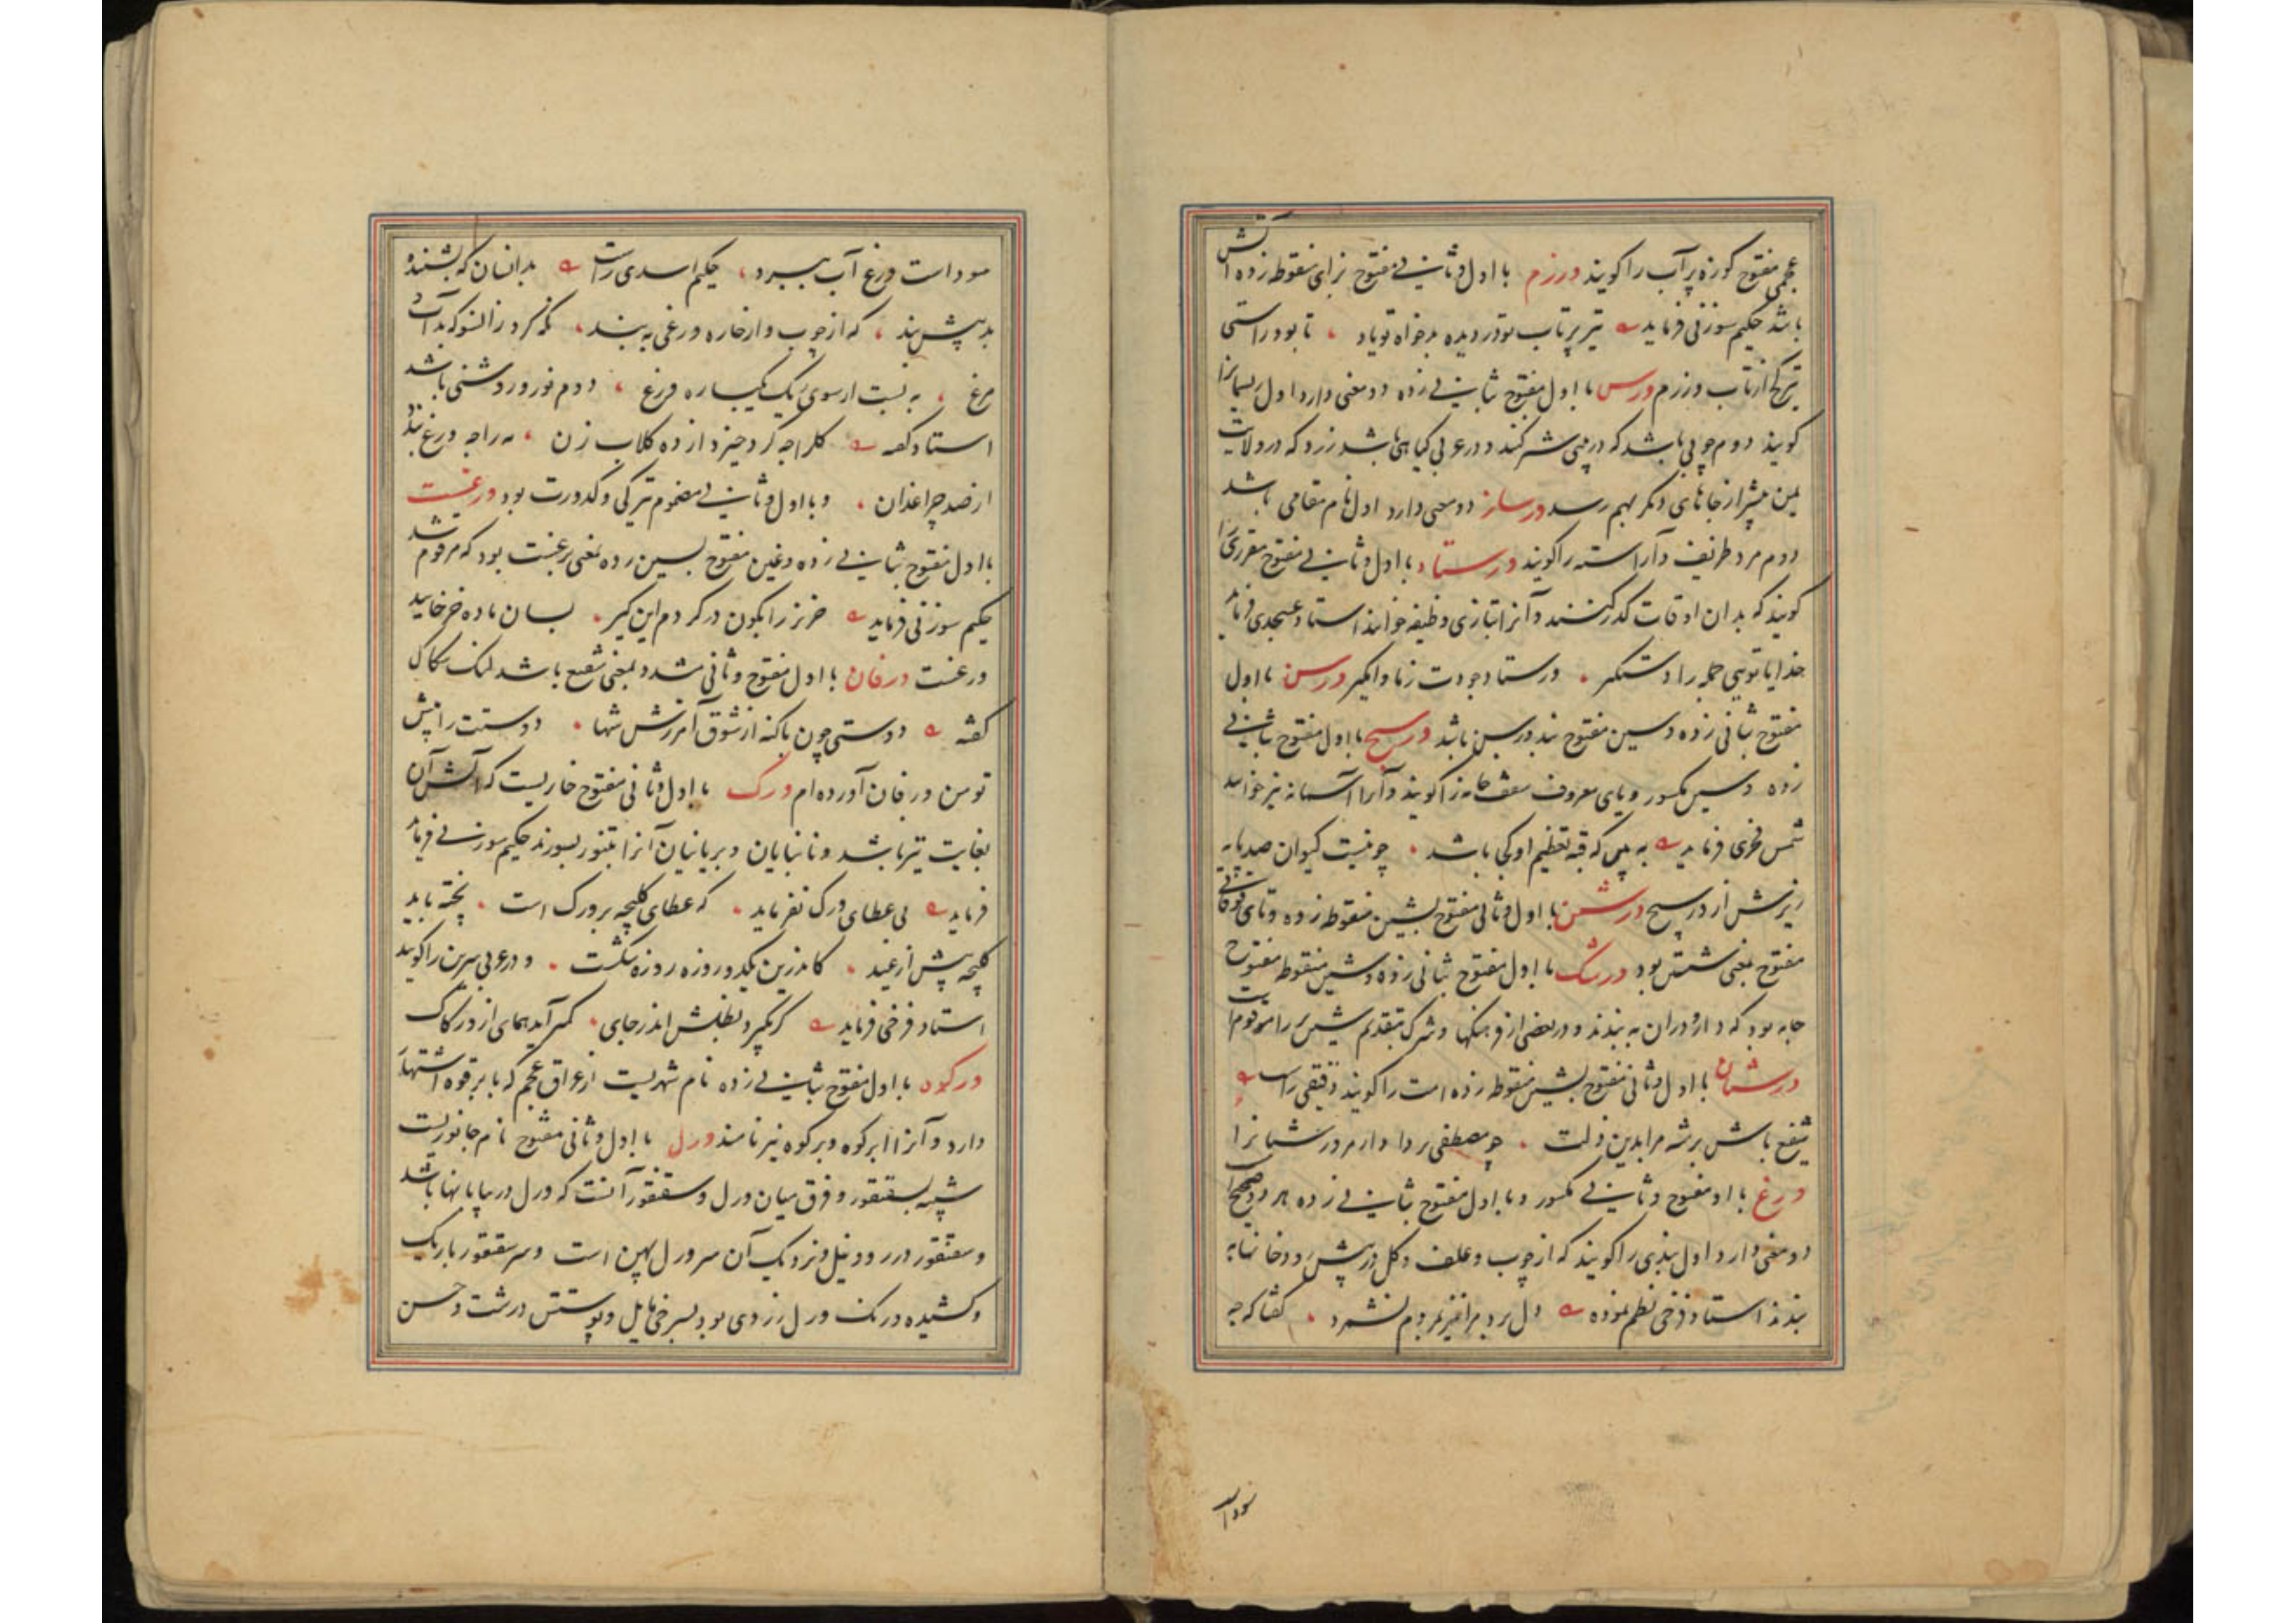 عجمی مفتوح کوزه پر آب را کویند ورزم با اول و ثانی مفتوح بزای منقوطه زده آتش
باشد حکیم سوزنی فرماید تیر پرتاب تو در دیده بدخواه تو باد تا بود راستی
تیر کج از تاب ورزم ورس با اول مفتوح بثانی زده دو معنی دارد اول ریسمانرا
کویند دوم چوبی باشد که در بینی شتر کنند و در عربی کیاهی باشد زرد که در ولایت
یمن بیشتر از جاهای دیکر بهم رسد ورساز دو معنی دارد اول نام مقامی باشد
دوم مرد ظریف و آراسته را کویند ورستاد با اول و ثانی مفتوح مقرری را
کویند که بدان اوقات کدر کنند و آنرا بتازی وظیفه خوانند استاد عسجدی فرماید
خدایا تویی جمله را دستکیر ورستاد جودت ز ما وامکیر ورسن با اول
مفتوح بثانی زده و سین مفتوح بند ورسن باشد ورسیج با اول مفتوح بثانی
زده و سین مکسور و یای معروف سقف خانه را کویند و آنرا آسمانه نیز خوانند
شمس فخری فرماید به پیش که قبه تعظیم او کجی باشد چو نیست کیوان صد پایه
زیرش از ورسیج ورشتن با اول و ثانی مفتوح بشین منقوطه زده و تای فوقانی
مفتوح بمعنی شستن بود ورشک با اول مفتوح بثانی زده و شین منقوطه مفتوح
جامه بود که داروران به بندند و در بعضی از فرهنکها وشرک بتقدیم شین بر را مرقوم است
ورشان با اول و ثانی مفتوح بشین منقوطه زده امت را کویند دقیقی راست
شفیع باش بر شه مرا بدین زلت چو مصطفی بر دادار مر ورشانرا
ورغ با اول مفتوح و ثانی مکسور و با اول مفتوح بثانی زده هر دو صحیح است
دو معنی دارد اول بندی را کویند که از چوب و علف و کل در پیش رودخانها
بندند استاد فرخی نظم نموده دل برد مرا نیز بمردم نشمرد کفتا که چه
سودا
سوداست ورغ آب ببرد حکیم اسدی راست بدانسان که بشنند و
بد پیش بند که از چوب و از خاره ورغی به بند نکه کرد زانسو که بد آب
مرغ به بست از سوی یک یکباره ورغ دوم نور و روشنی باشد
استاد کفته کلراجه کرد خیزد از ده کلاب زن مه را چه ورغ بند
از صد چراغدان و با اول و ثانی مضموم تیرکی و کدورت بود ورغست
با اول مفتوح بثانی زده و غین مفتوح بسین زده بمعنی برغست بود که مرقوم شد
حکیم سوزنی فرماید خر نر را بکون در کردم این کیر بسان ماده خر خایید
ورغست ورفان با اول مفتوح و ثانی مشدد بمعنی شفیع باشد لنک سکاکی
کفته دوستی چون باکنه از شوق آمرزش شها دوستت را پیش
تو من ورفان آورده ام ورک با اول و ثانی مفتوح خاریست که آتش آن
بغایت تیز باشد و نانبایان و بریانیان آنرا بتنور بسوزند حکیم سوزنی فرماید
فرماید بی عطای ورک نفرماید که عطای کلیچه بر ورک است پخته باید
کلیچه پیش از عید کاندرین یکدو روزه روزه شکست و در عربی سرین را کویند
استاد فرخی فرماید کر بکیرد بظلش اندر جای کمتر آید همای از ورکاک
ورکوه با اول مفتوح بثانی زده نام شهریست از عراق عجم که بابرقوه اشتهار
دارد و آنرا ابرکوه و برکوه نیز نامند ورل با اول و ثانی مفتوح نام جانوریست
شبیه بسقنقور و فرق میان ورل و سقنقور آنست که ورل در بیابانها باشد
و سقنقور در رود نیل و نزدیک آن سر ورل پهن است و سر سقنقور باریک
و کشیده و رنک ورل زردی بود بسرخی مایل و پوستش درشت و خشن